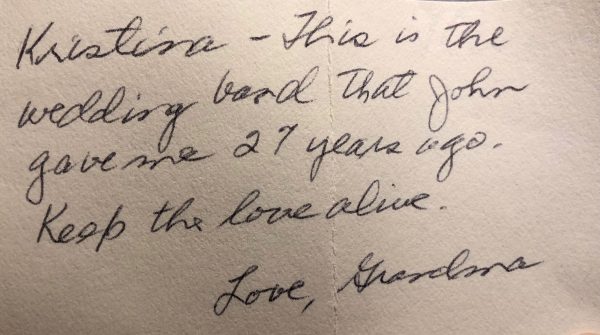 Kristina - This is the
wedding band that John
gave me 27 years ago.
Keep the love alive.
Love, Grandma